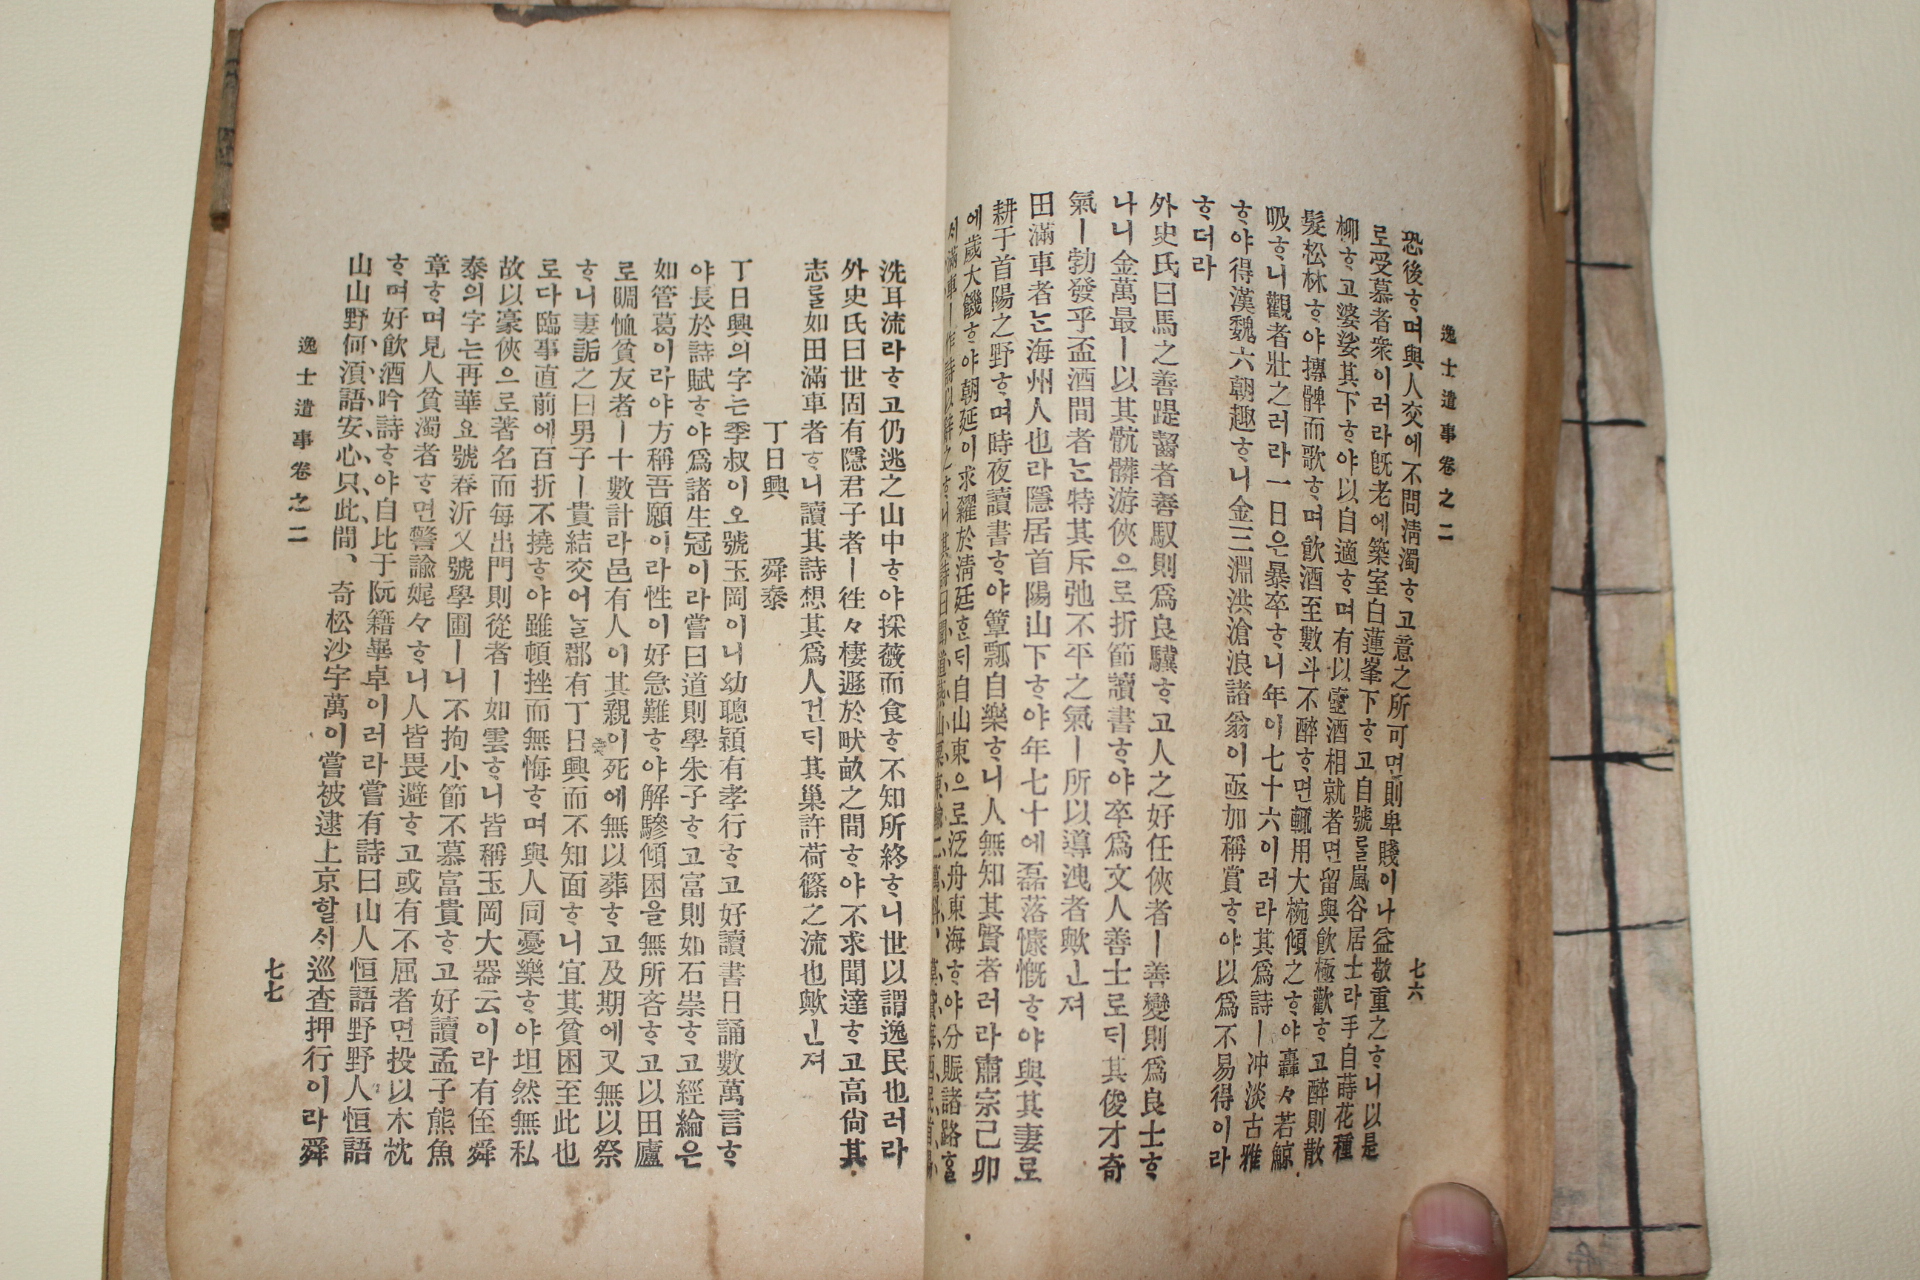 逸士遺事卷之二
七六
恐後ᄒᆞ며與人交에不問淸濁ᄒᆞ고意之所可면則卑賤이나益敬重之ᄒᆞ니以是
로受慕者衆이러라旣老에築室白蓮峯下ᄒᆞ고自號를嵐谷居士라手自蒔花種
柳ᄒᆞ고婆娑其下ᄒᆞ야以自適ᄒᆞ며有以壺酒相就者면留與飮極歡ᄒᆞ고醉則散
髮松林ᄒᆞ야摶髀而歌ᄒᆞ며飮酒至數斗不醉ᄒᆞ면輒用大椀傾之ᄒᆞ야轟々若鯨
吸ᄒᆞ니觀者壯之러라一日은暴卒ᄒᆞ니年이七十六이러라其爲詩ㅣ冲淡古雅
ᄒᆞ야得漢魏六朝趣ᄒᆞ니金三淵洪滄浪諸翁이亟加稱賞ᄒᆞ야以爲不易得이라
ᄒᆞ더라
外史氏曰馬之善踶齧者善馭則爲良驥ᄒᆞ고人之好任俠者ㅣ善變則爲良士ᄒᆞ
나니金萬最ㅣ以其骯髒游俠으로折節讀書ᄒᆞ야卒爲文人善士로ᄃᆡ其俊才奇
氣ㅣ勃發乎盃酒間者ᄂᆞᆫ特其斥弛不平之氣ㅣ所以導洩者歟ᅟᅵᆫ져
田滿車者ᄂᆞᆫ海州人也라隱居首陽山下ᄒᆞ야年七十에磊落慷慨ᄒᆞ야與其妻로
耕于首陽之野ᄒᆞ며時夜讀書ᄒᆞ야簞瓢自樂ᄒᆞ니人無知其賢者러라肅宗己卯
에歲大饑ᄒᆞ야朝廷이求糴於淸廷ᄒᆞᆫᄃᆡ自山東으로泛舟東海ᄒᆞ야分賑諸路ᄒᆞᆯ
洗耳流라ᄒᆞ고仍逃之山中ᄒᆞ야採薇而食ᄒᆞ不知所終ᄒᆞ니世以謂逸民也러라
外史氏曰世固有隱君子者ㅣ徃々棲遲於畎畝之間ᄒᆞ야不求聞達ᄒᆞ고高尙其
志를如田滿車者ᄒᆞ니讀其詩想其爲人건ᄃᆡ其巢許荷篠之流也歟ᅟᅵᆫ져
丁日興 舜泰
丁日興의字ᄂᆞᆫ季叔이오號玉岡이니幼聰穎有孝行ᄒᆞ고好讀書日誦數萬言ᄒᆞ
야長於詩賦ᄒᆞ야爲諸生冠이라嘗曰道則學朱子ᄒᆞ고富則如石崇ᄒᆞ고經綸은
如管葛이라야方稱吾願이라性이好急難ᄒᆞ야解驂傾囷을無所吝ᄒᆞ고以田廬
로賙恤貧友者ㅣ十數計라邑有人이其親이死에無以葬ᄒᆞ고及期에又無以祭
ᄒᆞ니妻詬之曰男子ㅣ貴結交어ᄂᆞᆯ郡有丁日興而不知面ᄒᆞ니宜其貧困至此也
로다臨事直前에百折不撓ᄒᆞ야雖頓挫而無悔ᄒᆞ며與人同憂樂ᄒᆞ야坦然無私
故以豪俠으로著名而每出門則從者ㅣ如雲ᄒᆞ니皆稱玉岡大器云이라有侄舜
泰의字ᄂᆞᆫ再華요號春沂又號學圃ㅣ니不拘小節不慕富貴ᄒᆞ고好讀孟子熊魚
章ᄒᆞ며見人貧濁者ᄒᆞ면警諭娓々ᄒᆞ니人皆畏避ᄒᆞ고或有不屈者면投以木枕
ᄒᆞ며好飮酒吟詩ᄒᆞ야自比于阮籍畢卓이러라嘗有詩曰山人恒語野野人恒語
山山野何湏語安心只此間、奇松沙宇萬이嘗被逮上京할ᄉᆡ巡査押行이라舜
逸士遺事卷之二
七七